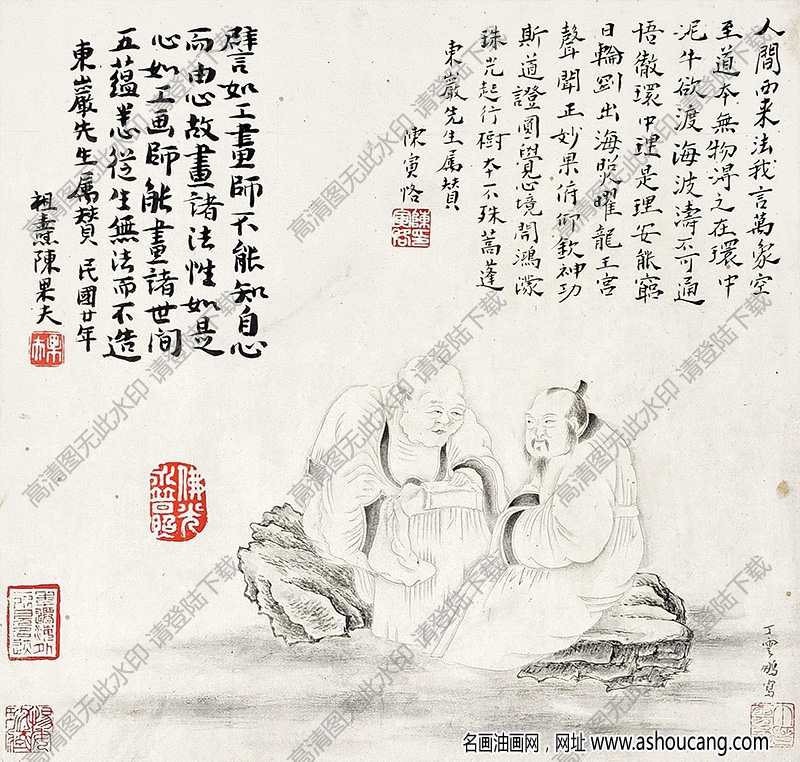 人間西来法我言萬象空
至道本無物得之在環中
泥牛欲渡海波濤不可通
悟徹環中理是理安能窮
日輪劉出海照曜龍王宮
聲聞正妙果俯仰欽神功
斯道證圓覺心境開鴻濛
珠光起行樹本不殊蒿蓬
東巖先生属賛
陳寅恪
譬言如工畫師不能知自心
而由心故畫諸法性如是
心如工画師能畫諸世间
五蘊悉従生無法而不造
東山巖先生属賛 民國廿年
祖燾陳果夫
佛光
丁雲鵬寫
高清图无此水印 请登陆下载
名画油画网，网址 www.ashoucang.com